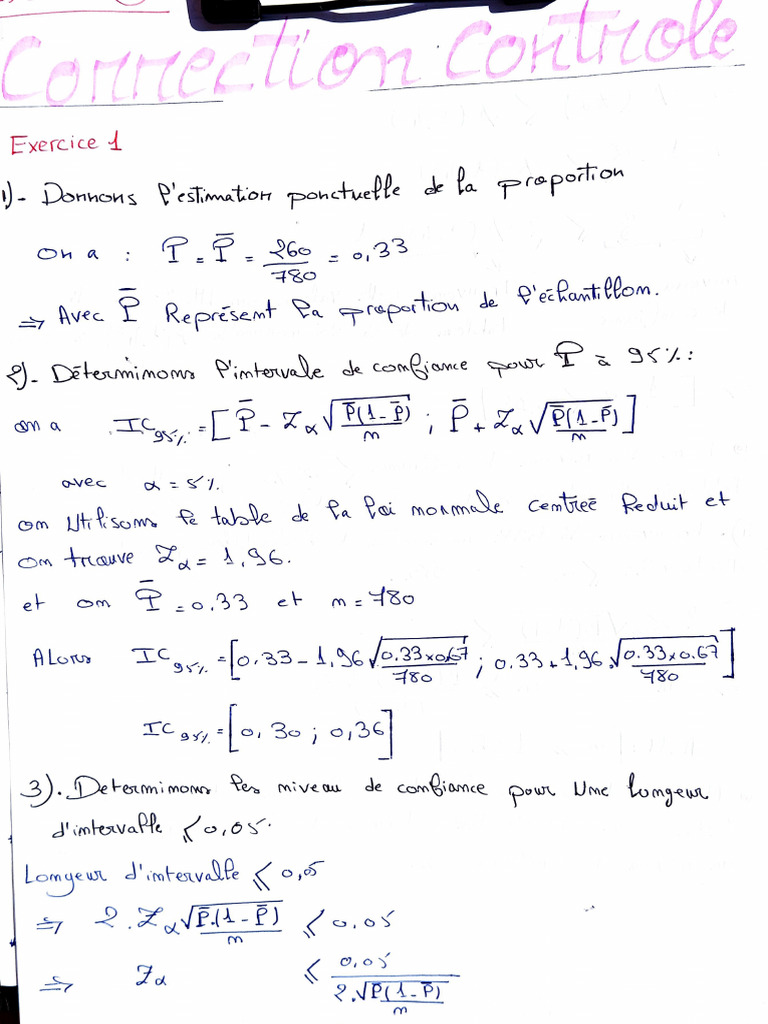 Correction Controle
Exercice 1
1)- Donnons l'estimation ponctuelle de la proportion
On a : P = P̄ = 260/780 = 0,33
⇒ Avec P̄ Représent la proportion de l'échantillon.
2)- Déterminons l'intervale de confiance pour P à 95%:
on a IC95% = [P̄ - Zα√(P̄(1-P̄)/n) ; P̄ + Zα√(P̄(1-P̄)/n)]
avec α = 5%
on Utilisons le table de la loi normale centreé Reduit et
on trouve Zα = 1,96.
et on P̄ = 0.33 et n = 780
Alors IC95% = [0.33 - 1,96√(0.33×0.67/780) ; 0.33 + 1,96.√(0.33×0.67/780)]
IC95% = [0,30 ; 0,36]
3). Determinons les niveau de confiance pour Une longeur
d'intervalle ⩽ 0,05.
Longeur d'intervalle ⩽ 0,05
⇒ 2.Zα√(P̄.(1-P̄)/n) ⩽ 0.05
⇒ Zα ⩽ 0,05/(2.√(P̄(1-P̄)/n))